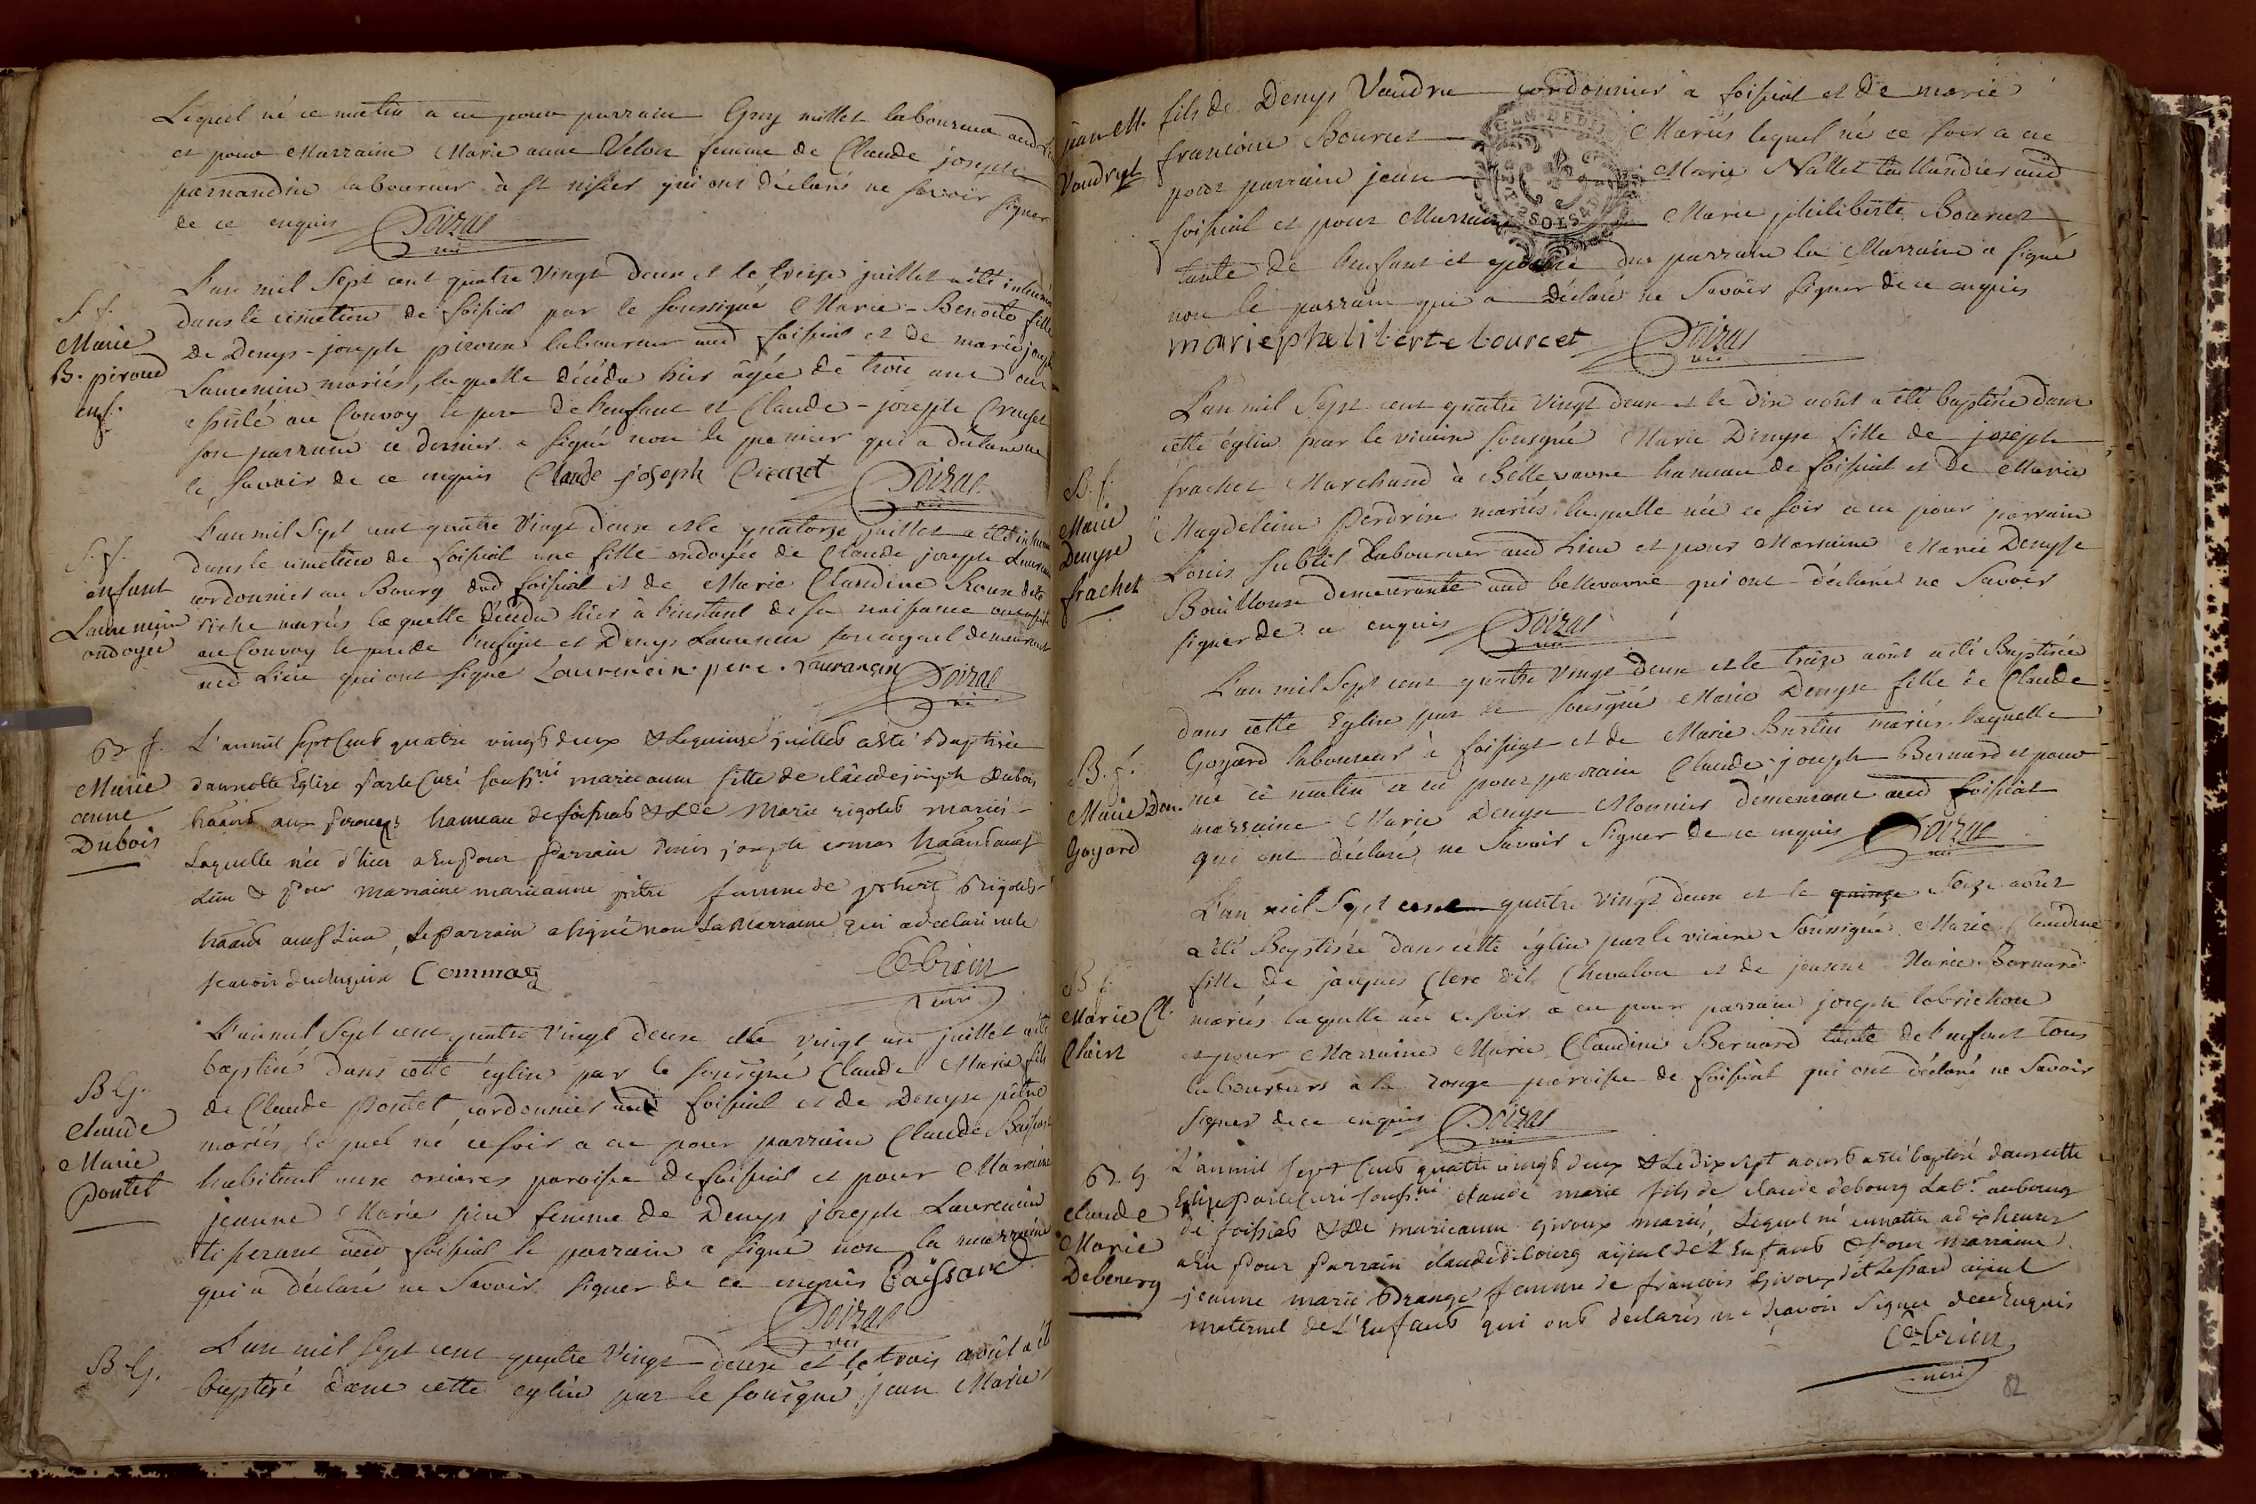 Lequel né ce matin a eu pour parrain Guy millet laboureur aud Lieu
et pour Marraine Marie anne Vélon femme de Claude joseph
pernandin laboureur à St nisier qui ont déclaré ne savoir signer
de ce enquis Doizat
vic
L'an mil Sept cent quatre Vingt deux et le treize juillet a été inhumée
S. f.
Marie
B. piroud
enf.
dans le cimetiere de foissiat par le soussigné Marie-Benoite fille
de Denys-joseph piroux laboureur aud foissiat et de marie joseph
Laurencin mariés, laquelle décéda hier agée de trois ans ont
assisté au Convoy le pere de l'enfant et Claude-joseph Cruzet
son parrain ce dernier a signé non le premier qui a déclaré ne
le savoir de ce enquis Claude joseph Cruzet Doizat
vic
L'an mil Sept cent quatre Vingt deux et le quatorze juillet a été inhumée
S. f.
enfant
Laurencin
ondoyée
dans le cimetiere de foissiat une fille ondoyée de Claude joseph Laurencin
cordonnier au Bourg dud foissiat et de Marie Claudine Roux dite
riche mariés laquelle décéda hier à l'instant de sa naissance ont assisté
au Convoy le pere de l'enfant et Denys Laurencin son ayeul demeurant
aud Lieu qui ont signé Laurencin pere. Lauranсin Doizat
vic
B. f.
Marie
anne
Dubois
L'an mil sept Cent quatre vingt deux & Le quinze juillet a été Baptisée
dans cette Eglise par le Curé souss.né marie anne fille de claude joseph Dubois
habit aux piroux hameau de foissiat & de Marie rigolet mariés
Laquelle née d'hier a Eu pour Parrain denis joseph comas habitant aud
Lieu & Pour marraine marie anne pitre femme de joseph Rigolet
habit aud Lieu, Le Parrain a signé non La Marraine qui a déclaré ne le
scavoir de ce Enquis Commas Cobrien
curé
L'an mil Sept cent quatre Vingt deux et le vingt un juillet a été
B. G.
Claude
Marie
Pontet
baptisé dans cette église par le sousigné Claude Marie fils
de Claude Pontet cordonnier aud foissiat et de Denyse pitre
mariés lequel né ce soir a eu pour parrain Claude Baissard
habitant aux orcières paroisse de foissiat et pour Marraine
jeanne Marie piru femme de Denys joseph Laurencin
tisserand aud foissiat le parrain a signé non la marraine
qui a déclaré ne Savoir signer de ce enquis Baissard
Doizat
vic
B. G.
L'an mil sept cent quatre Vingt deux et le trois août a été
baptisé dans cette église par le sousigné jean Marie
jean M.
Vaudryt
fils de Denys Vaudru cordonnier à foissiat et de marie
francoise Bourcet Mariés lequel né ce soir a eu
pour parrain jean Marie Nallet taillandier aud
foissiat et pour Marraine Marie philiberte Bourcet
tante de l'enfant et epouse du parrain la Marraine a signé
non le parrain qui a déclaré ne Savoir signer de ce enquis
marie pheliberte bourcet Doizat
vic
L'an mil Sept cent quatre Vingt deux et le Dix août a été baptisée dans
cette église par le vicaire sousigné Marie Denyse fille de joseph
B. f.
Marie
Denyse
frachet
frachet Marchand à Bellevavre hameau de foissiat et de Marie
Magdeleine Perdrix mariés laquelle née ce soir a eu pour parrain
Louis subtil Laboureur aud Lieu et pour Marraine Marie Denyse
Bouilloux demeurante aud bellevavre qui ont déclaré ne Savoir
signer de ce enquis Doizat
vic
L'an mil Sept cent quatre Vingt deux et le treize août a été Baptisée
dans cette Eglise par le sousigné Marie Denyse fille de Claude
B. f.
Marie Den.
Goyard
Goyard laboureur à foissiat et de Marie Burtin mariés laquelle
née ce matin a eu pour parrain Claude joseph Bernard et pour
marraine Marie Denyse Monnier demeurant aud foissiat
qui ont déclaré ne Savoir signer de ce enquis Doizat
vic
L'an mil Sept cent quatre vingt deux et le quinze Seize août
a été Baptisée dans cette église par le vicaire Soussigné Marie Claudine
B f.
Marie Cl.
Clerc
fille de jacques Clerc dit Chevalon et de jeanne Marie Bernard
mariés laquelle née ce soir a eu pour parrain joseph cobrichon
et pour Marraine Marie Claudine Bernard tante de l'enfant tous
laboureurs à la ronge paroisse de foissiat qui ont déclaré ne Savoir
signer de ce enquis Doizat
vic
B. G.
Claude
Marie
Debourg
L'an mil sept Cent quatre vingt deux & Le dix sept aoust a été baptisé dans cette
Eglise par le Curé souss.né claude marie fils de claude debourg Lab.r au bourg
de foissiat & de marie anne givoux mariés, Lequel né ce matin a dix heures
a Eu Pour Parrain claude debourg ayeul de L'Enfant & Pour marraine
jeanne marie Drange femme de francois givoux dit Lessard ayeul
maternel de L'Enfant qui ont déclaré ne scavoir signer de ce Enquis
Cobrien
curé
82